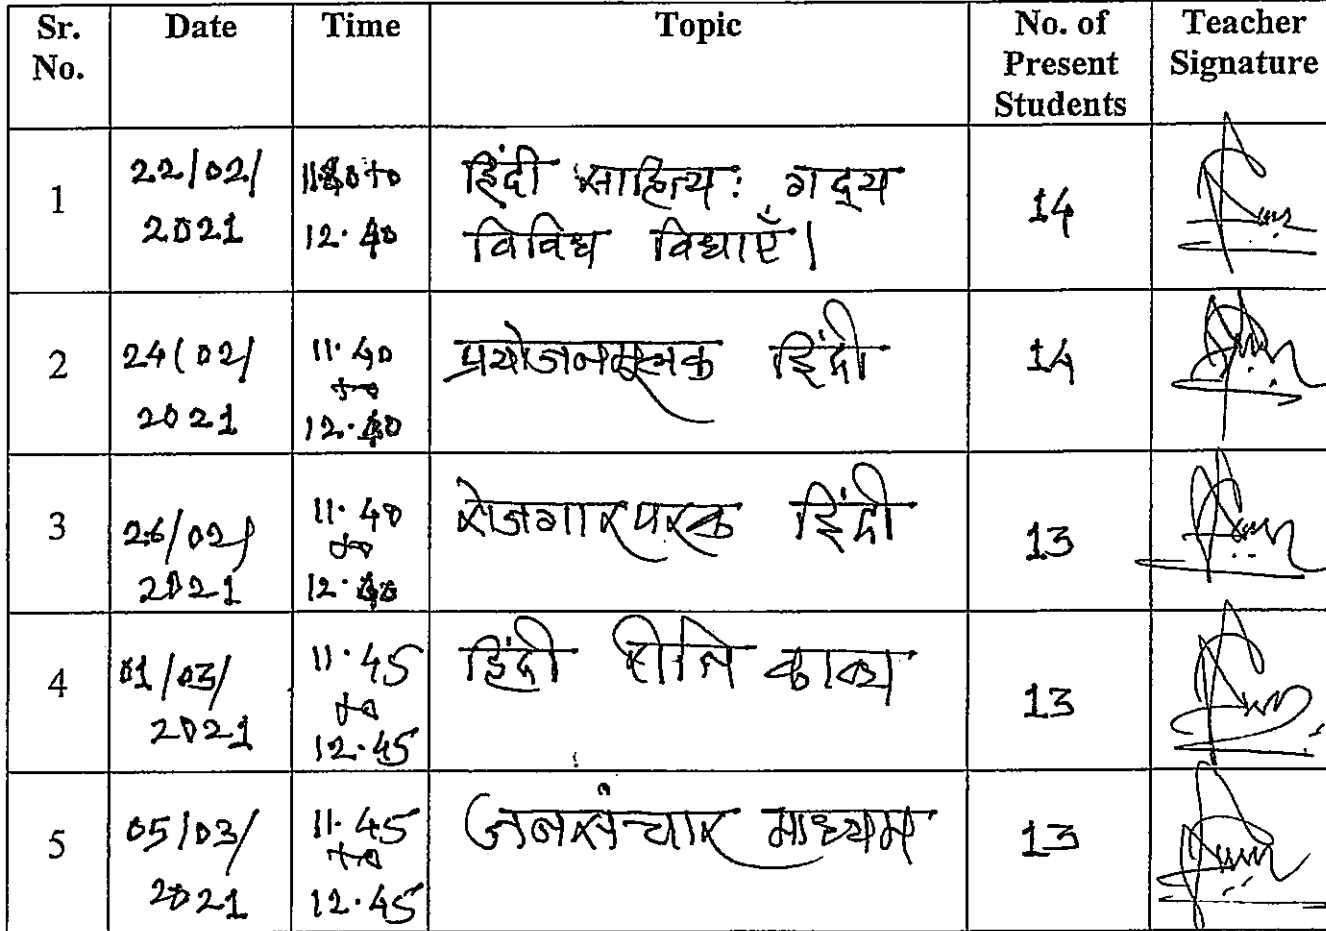 Sr. No. Date Time Topic No. of Present Students Teacher Signature
1 22/02/ 2021 to 12.40 हिंदी साहित्य: गद्य विविध विधाएँ। 14
2 24/02/ 2021 11.40 to 12.40 प्रयोजनमूलक हिंदी 14
3 26/02/ 2021 11.40 to 12.40 रोजगारपरक हिंदी 13
4 01/03/ 2021 11.45 to 12.45 हिंदी रीति काव्य 13
5 05/03/ 2021 11.45 to 12.45 जनसंचार माध्यम 13